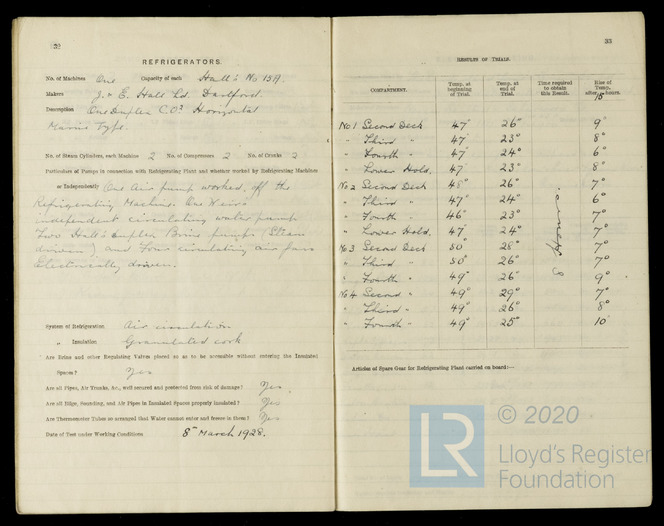 32
REFRIGERATORS.
No. of Machines One Capacity of each Hall's No 13A.
Makers J. & E. Hall Ld. Dartford.
Description One Duplex C.O² Horizontal
Marine Type.
No. of Steam Cylinders, each Machine 2 No. of Compressors 2 No. of Cranks 2
Particulars of Pumps in connection with Refrigerating Plant and whether worked by Refrigerating Machines
or Independently One Air pump worked off the
Refrigerating Machine. One Weir's
independent circulating water pump
Two Hall's Duplex Brine pumps (Steam
driven) and Four circulating air fans
Electrically driven.
System of Refrigeration Air circulation
" Insulation Granulated cork
Are Brine and other Regulating Valves placed so as to be accessible without entering the Insulated
Spaces? Yes
Are all Pipes, Air Trunks, &c., well secured and protected from risk of damage? Yes
Are all Bilge, Sounding, and Air Pipes in Insulated Spaces properly insulated? Yes
Are Thermometer Tubes so arranged that Water cannot enter and freeze in them? Yes
Date of Test under Working Conditions 8th March 1928.
33
RESULTS OF TRIALS.
COMPARTMENT. Temp. at beginning of Trial. Temp. at end of Trial. Time required to obtain this Result. Rise of Temp. after 15 hours.
No 1 Second Deck 47° 26° 9°
" Third " 47° 23° 8°
" Fourth " 47° 24° 6°
" Lower Hold. 47° 23° 8°
No 2 Second Deck 48° 26° 7°
" Third " 47° 24° 6°
" Fourth " 46° 23° 7°
" Lower Hold. 47° 24° 7°
No 3 Second Deck 50° 28° 7°
" Third " 50° 26° 7°
" Fourth " 49° 26° 9°
No 4 Second " 49° 29° 7°
" Third " 49° 26° 8°
" Fourth " 49° 25° 10°
8 Hours.
Articles of Spare Gear for Refrigerating Plant carried on board:—
LR
© 2020
Lloyd's Register
Foundation